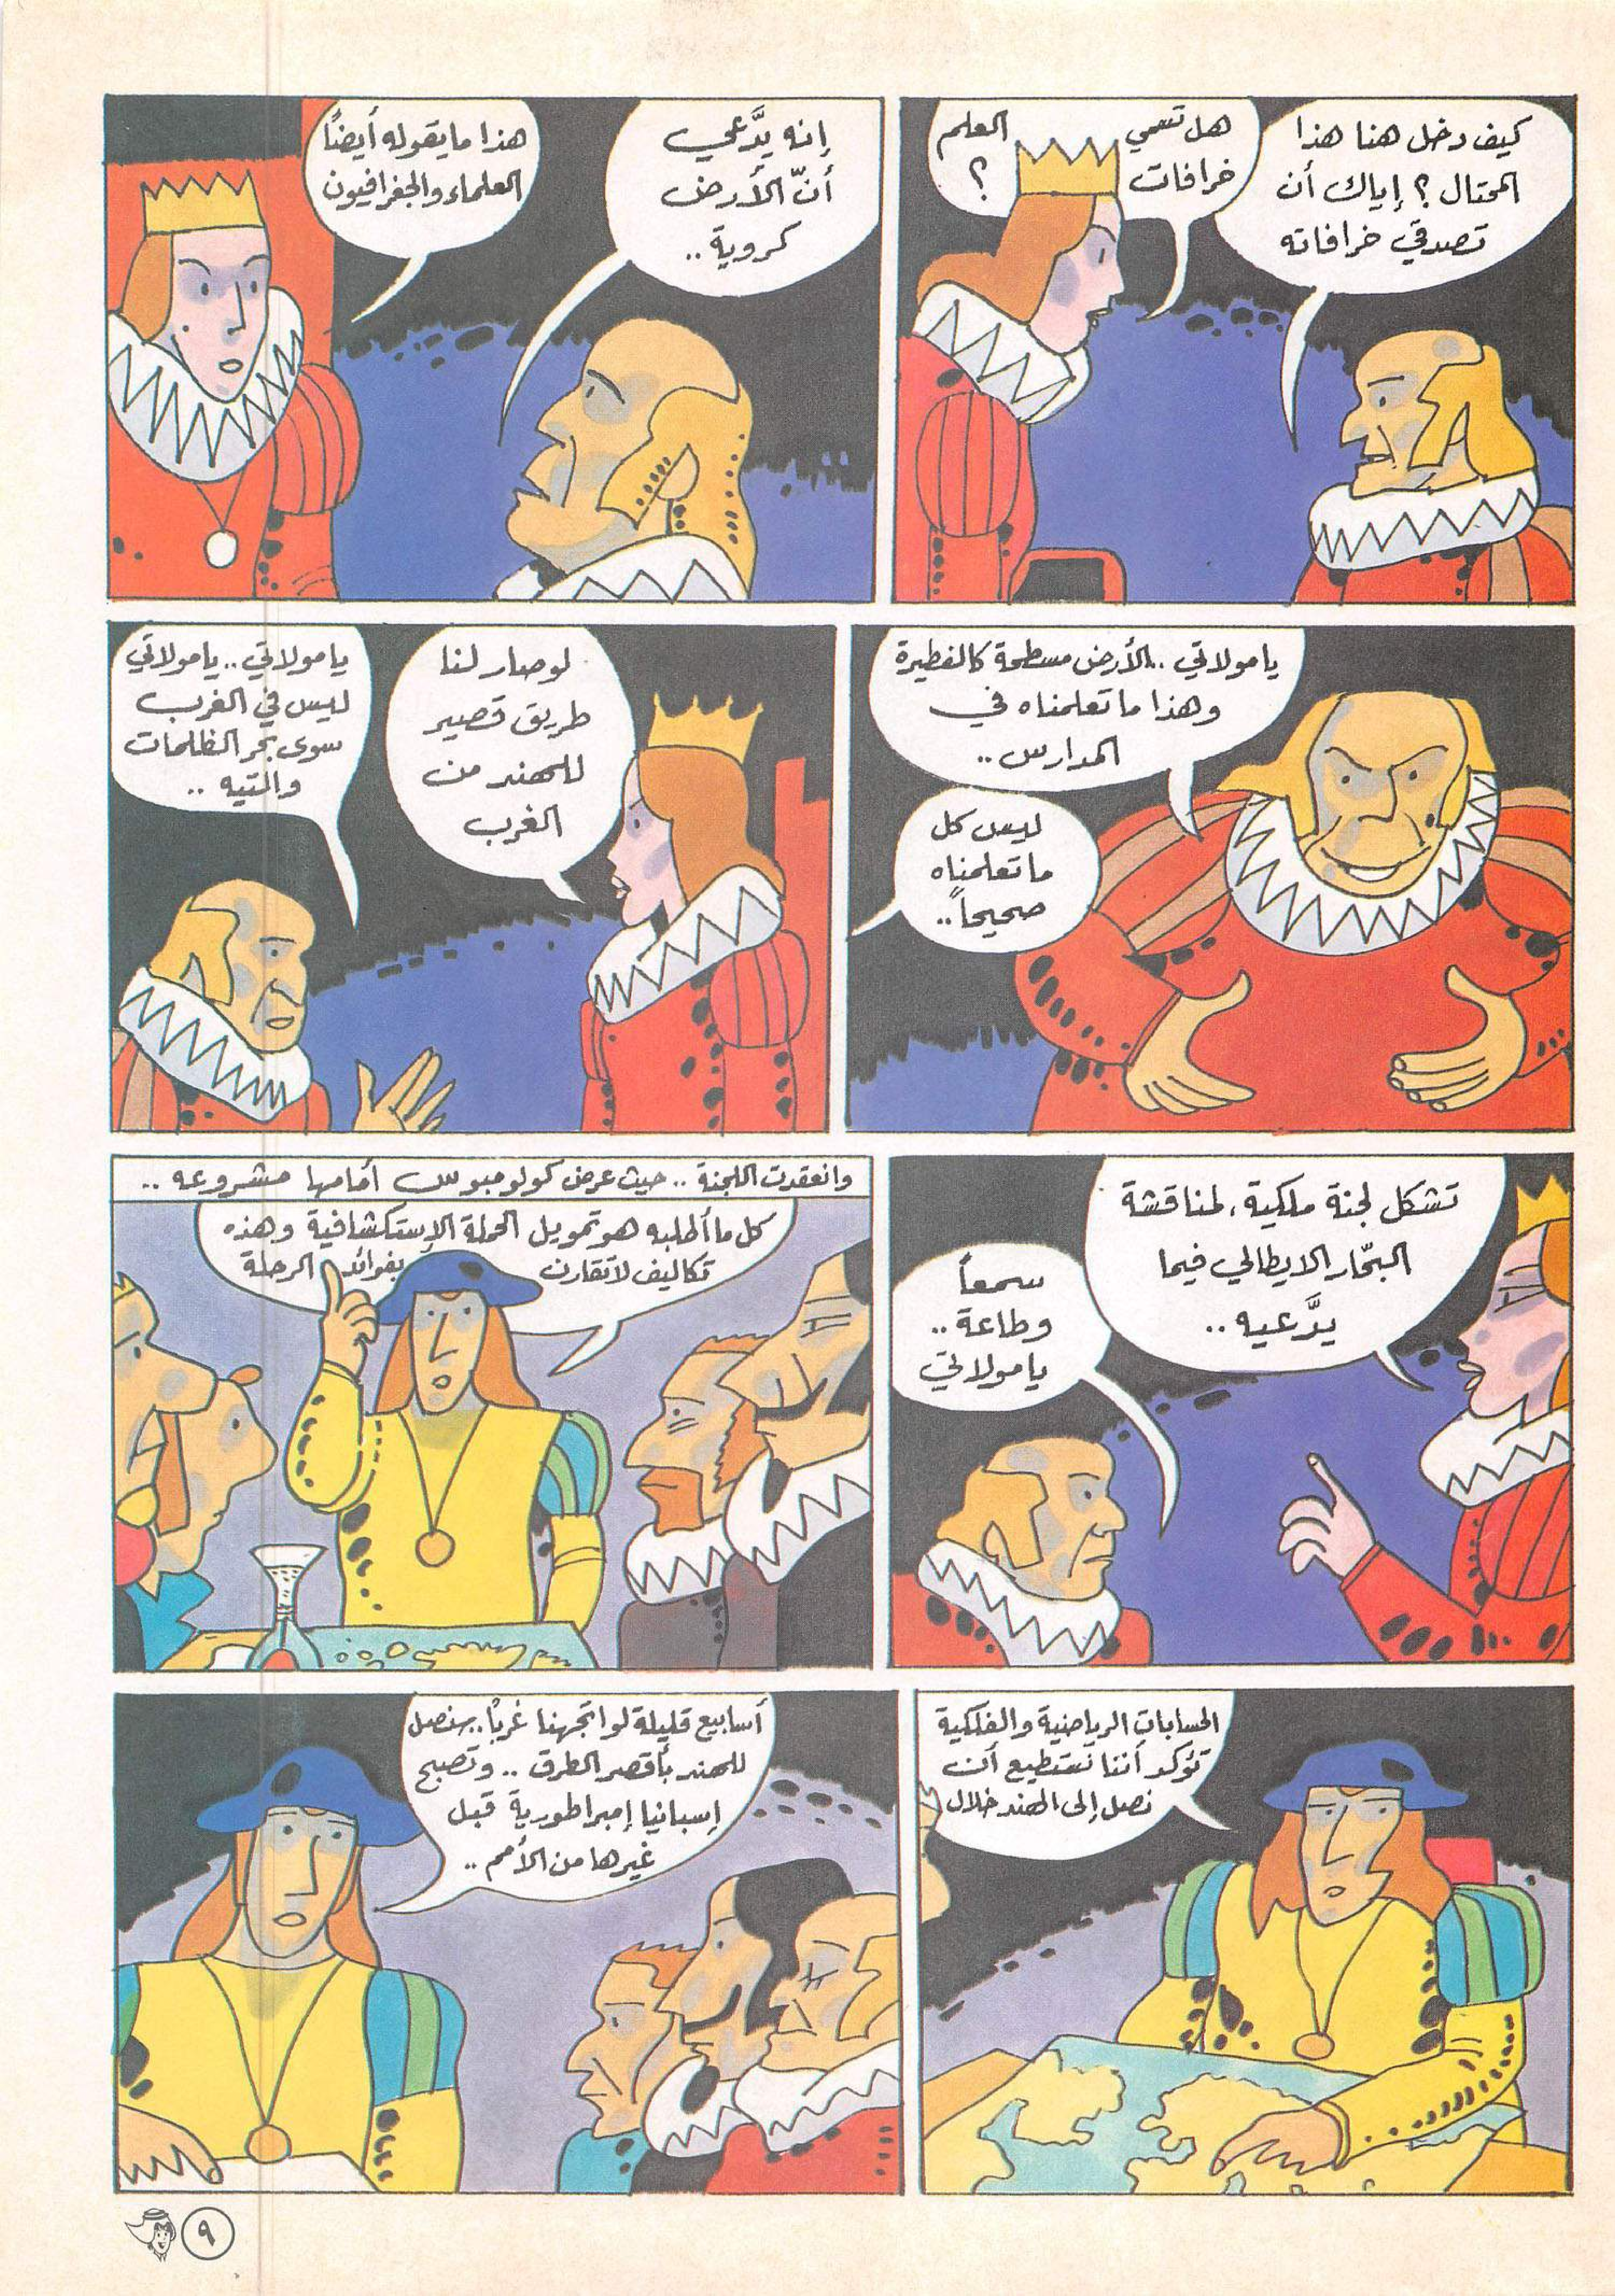 كيف دخل هنا هذا
المحتال ؟ إياك أن
تصدقي خرافاته
هل تسمي العلم
خرافات ؟
إنه يدَّعي
أنّ الأرض
كروية ..
هذا ما يقوله أيضًا
العلماء والجغرافيون
يا مولاتي .. الأرض مسطحة كالفطيرة
وهذا ما تعلمناه في
المدارس ..
ليس كل
ما تعلمناه
صحيحاً ..
لو صار لنا
طريق قصير
للهند من
الغرب
يا مولاتي .. يا مولاتي
ليس في الغرب
سوى بحر الظلمات
والتيه ..
تشكل لجنة ملكية ، لمناقشة
البحّار الايطالي فيما
يدَّعيه ..
سمعاً
وطاعة ..
يا مولاتي
وانعقدت اللجنة .. حيث عرض كولومبوس أمامها مشروعه ..
كل ما أطلبه هو تمويل الحملة الإستكشافية وهذه
تكاليف لا تقارن بفوائد الرحلة
الحسابات الرياضية والفلكية
تؤكد أننا نستطيع أن
نصل إلى الهند خلال
أسابيع قليلة لو اتجهنا غربًا .. سنصل
للهند بأقصر الطرق .. وتصبح
إسبانيا إمبراطورية قبل
غيرها من الأمم ..
٩